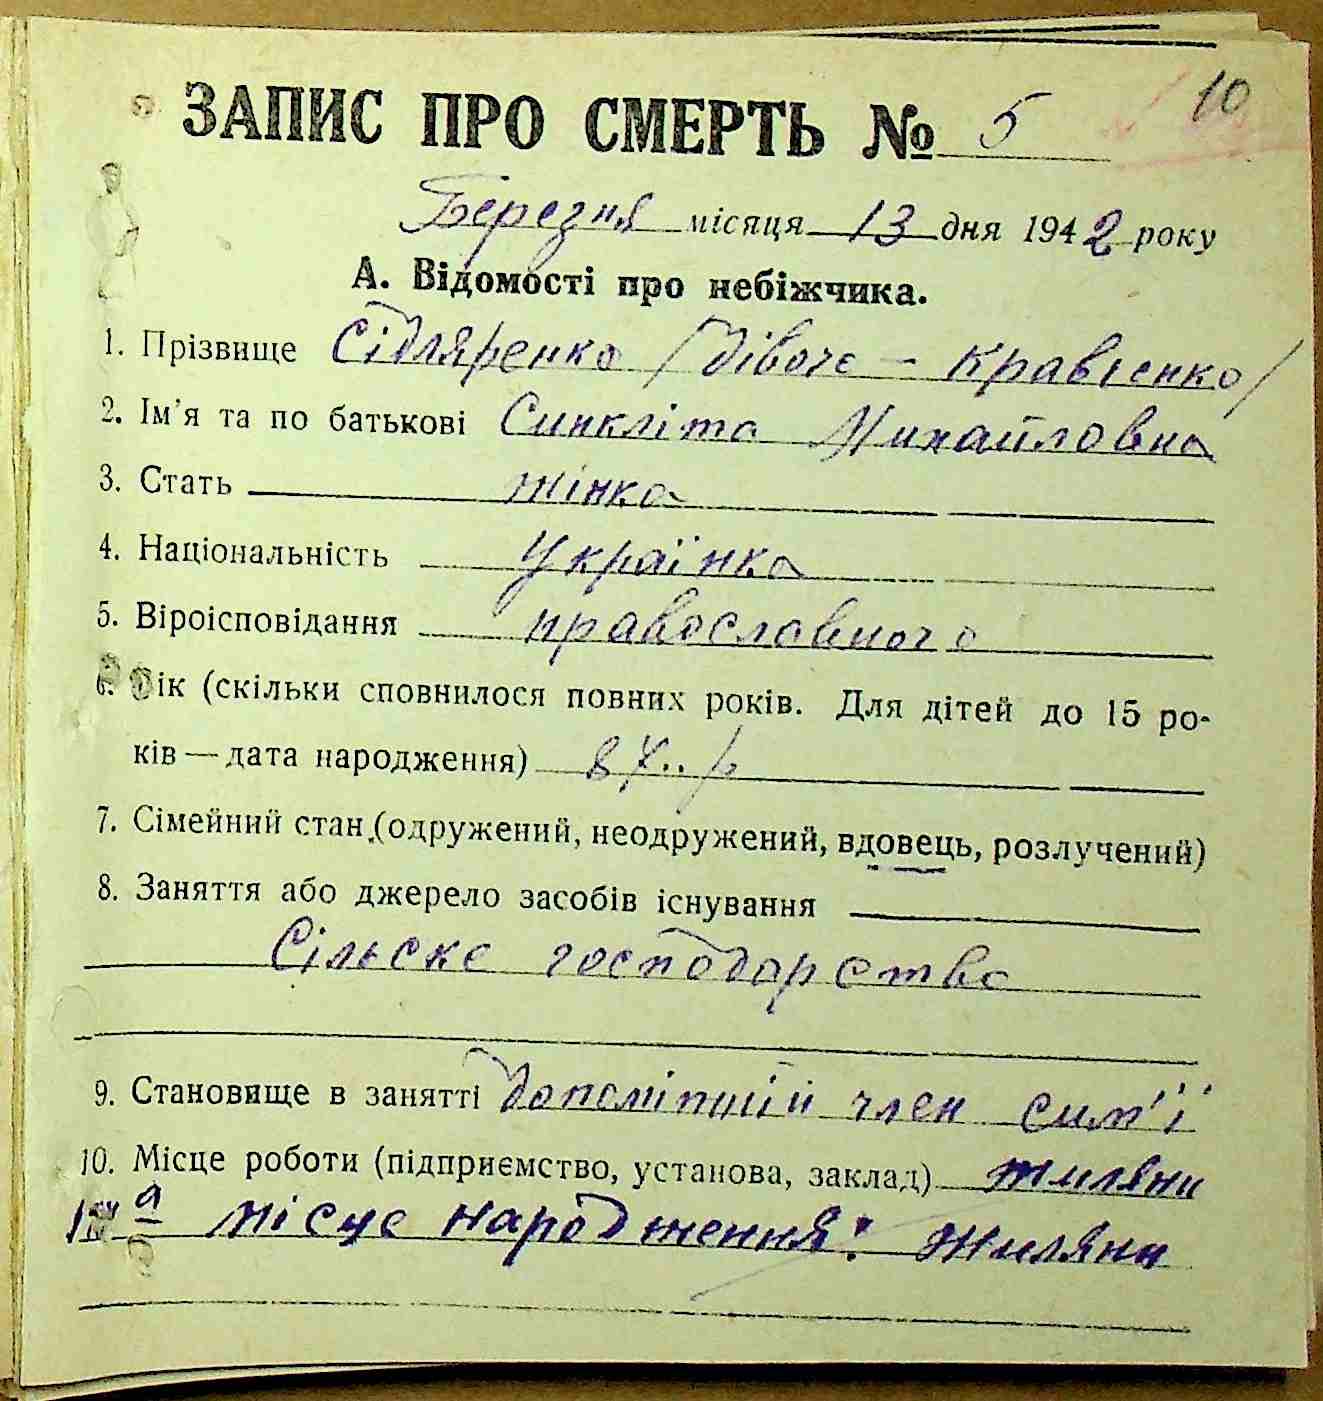 10
ЗАПИС ПРО СМЕРТЬ № 5
Березня місяця 13 дня 1942 року
А. Відомості про небіжчика.
1. Прізвище Сідляренко /дівоче - Кравченко/
2. Ім'я та по батькові Синкліта Михайловна
3. Стать жінка
4. Національність Українка
5. Віроісповідання православного
6. Вік (скільки сповнилося повних років. Для дітей до 15 ро-
ків — дата народження) 87.. р
7. Сімейний стан (одружений, неодружений, вдовець, розлучений)
8. Заняття або джерело засобів існування
Сільске господарство
9. Становище в занятті допоміжний член сим'ї
10. Місце роботи (підприємство, установа, заклад) Жиляни
а місце народження: Жиляни